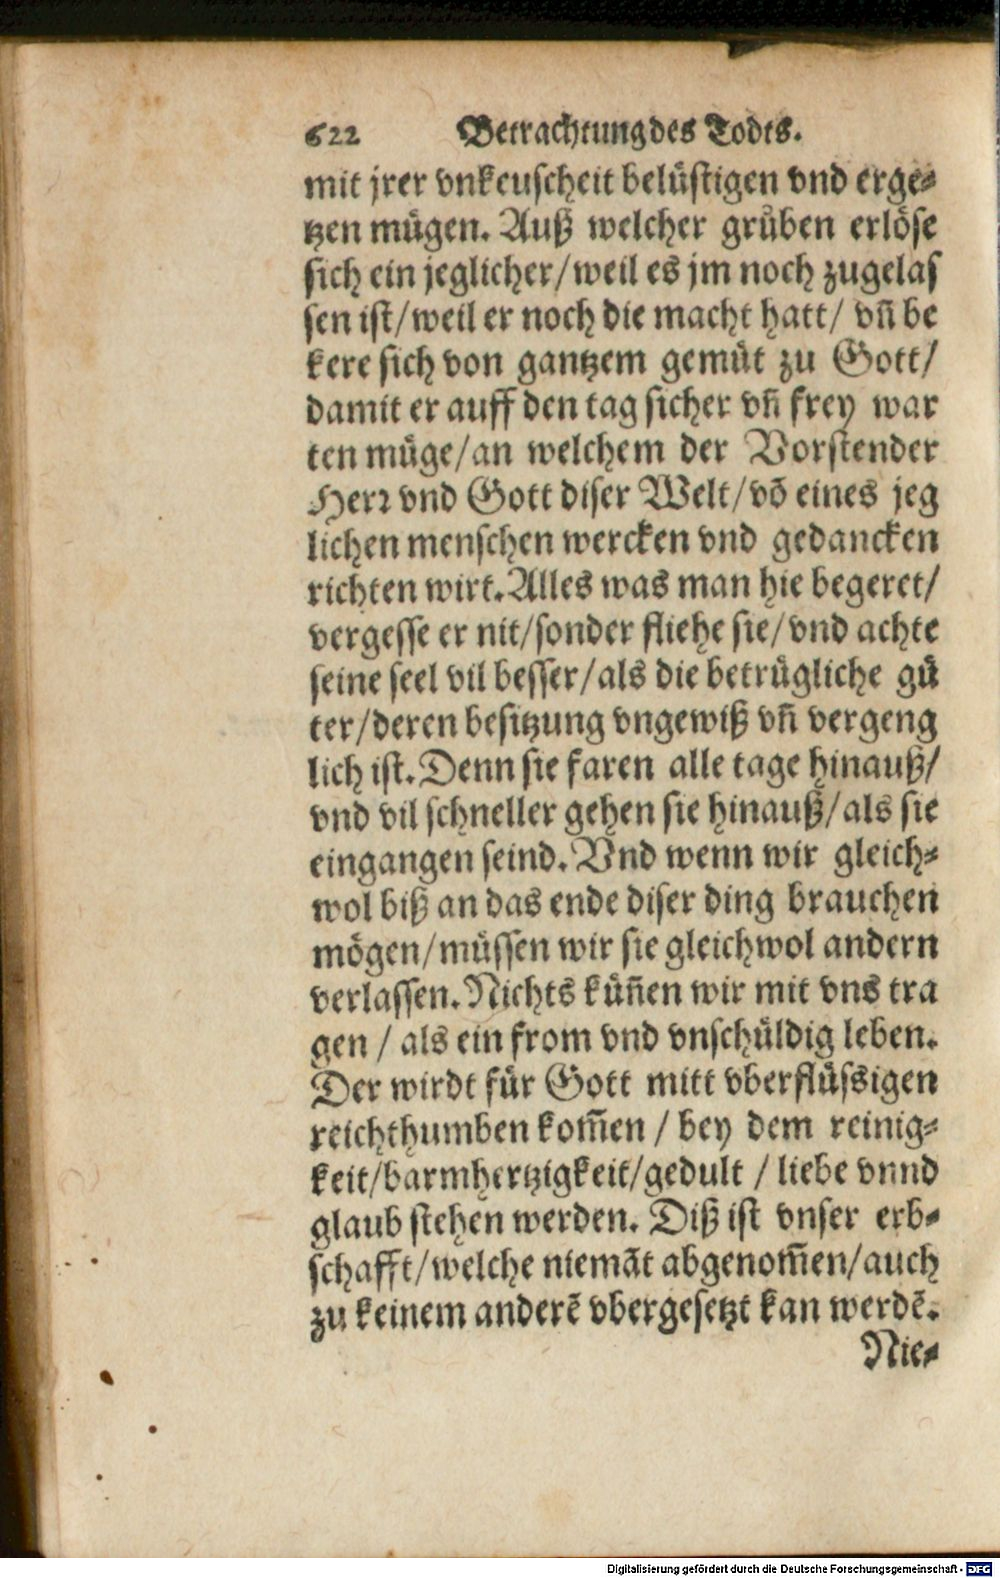 622 Betrachtung des Todts.
mit jrer vnkeuscheit belüstigen vnd erge-
tzen mügen. Auß welcher grůben erlöse
sich ein jeglicher/weil es jm noch zugelas
sen ist/weil er noch die macht hatt/ vñ be
kere sich von gantzem gemüt zu Gott/
damit er auff den tag sicher vñ frey war
ten müge/an welchem der Vorstender
Herr vnd Gott diser Welt/võ eines jeg
lichen menschen wercken vnd gedancken
richten wirt. Alles was man hie begeret/
vergesse er nit/sonder fliehe sie/vnd achte
seine seel vil besser/als die betrügliche gü
ter/deren besitzung vngewiß vñ vergeng
lich ist. Denn sie faren alle tage hinauß/
vnd vil schneller gehen sie hinauß/als sie
eingangen seind. Vnd wenn wir gleich-
wol biß an das ende diser ding brauchen
mögen/müssen wir sie gleichwol andern
verlassen. Nichts küñen wir mit vns tra
gen / als ein from vnd vnschüldig leben.
Der wirdt für Gott mitt vberflüssigen
reichthumben kom̃en / bey dem reinig-
keit/barmhertzigkeit/gedult / liebe vnnd
glaub stehen werden. Diß ist vnser erb-
schafft/welche niemãt abgenom̃en/auch
zu keinem anderẽ vbergesetzt kan werdẽ.
Nie-
Digitalisierung gefördert durch die Deutsche Forschungsgemeinschaft - DFG